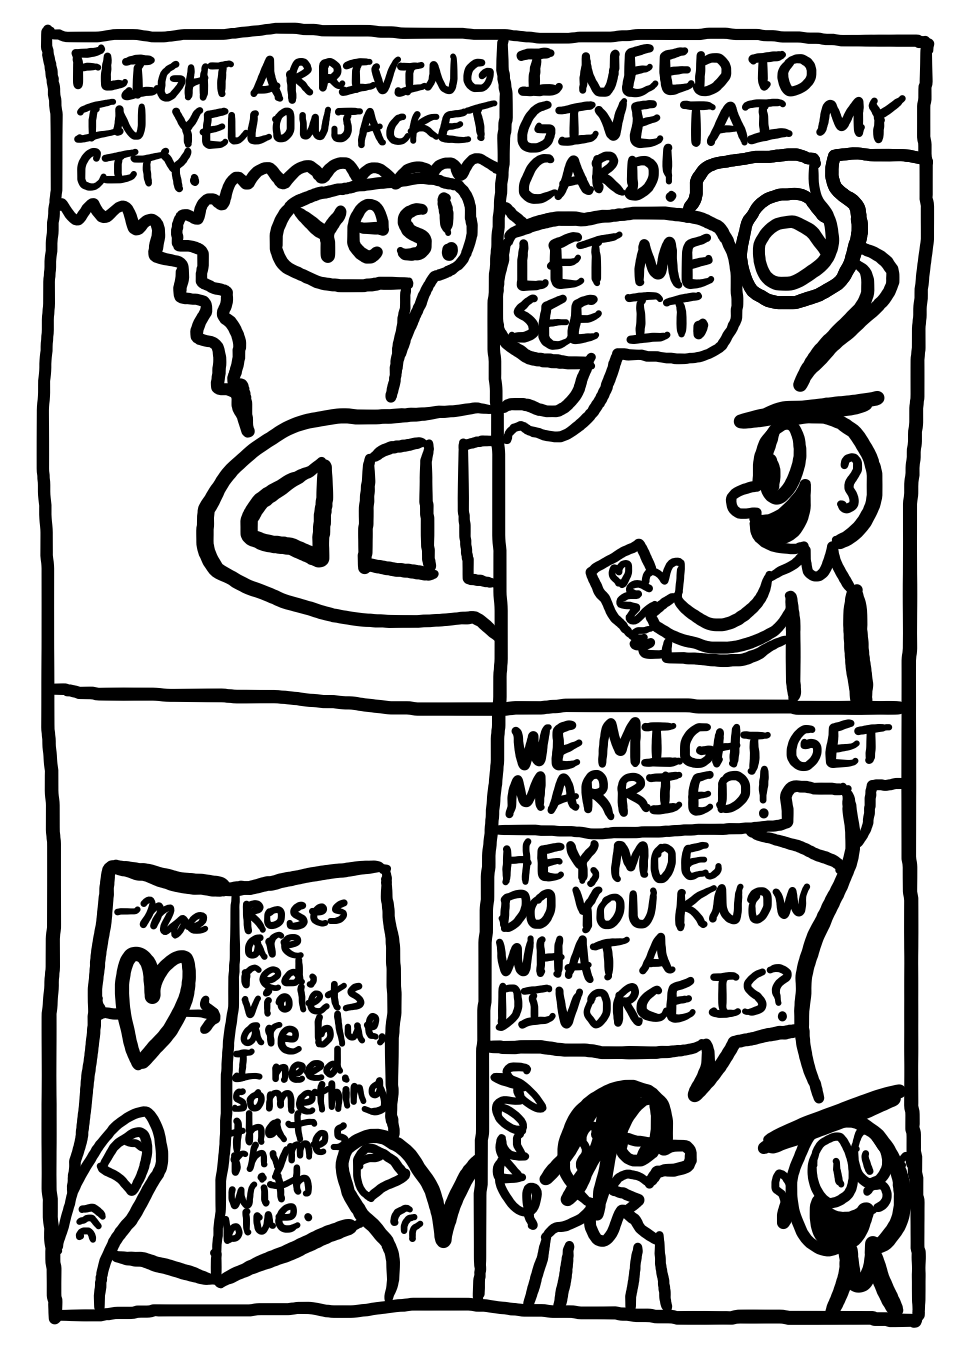 FLIGHT ARRIVING
IN YELLOWJACKET
CITY.
Yes!
I NEED TO
GIVE TAI MY
CARD!
LET ME
SEE IT.
-Moe
Roses
are
red,
violets
are blue,
I need
something
that
rhymes
with
blue.
WE MIGHT GET
MARRIED!
HEY, MOE,
DO YOU KNOW
WHAT A
DIVORCE IS?